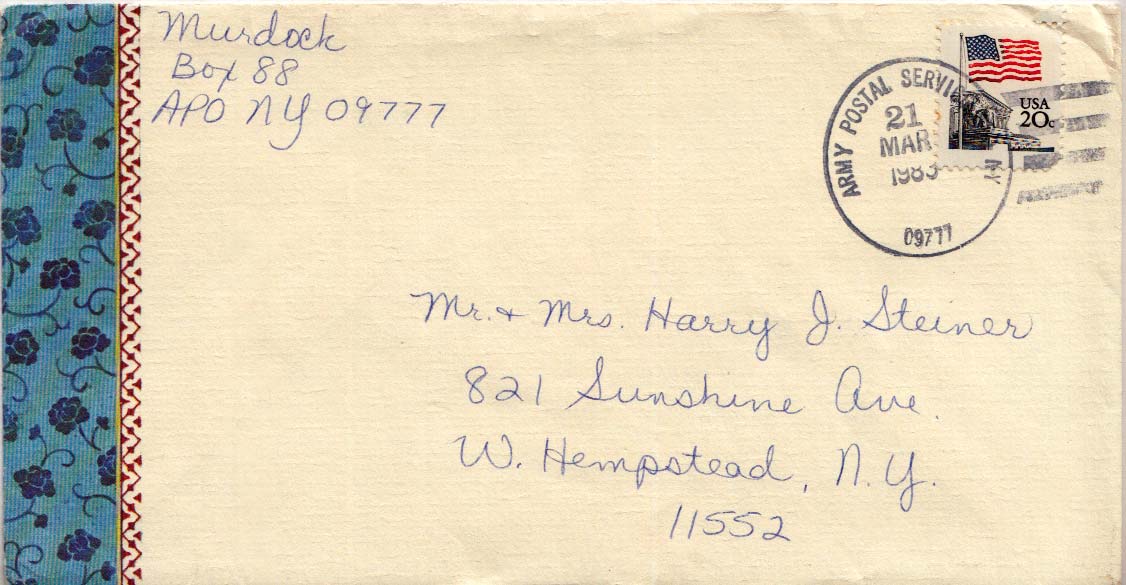 Murdock
Box 88
APO NY 09777
ARMY POSTAL SERVICE NY
21
MAR
1983
09777
USA
20c
Mr. + Mrs. Harry J. Steiner
821 Sunshine Ave.
W. Hempstead, N.Y.
11552